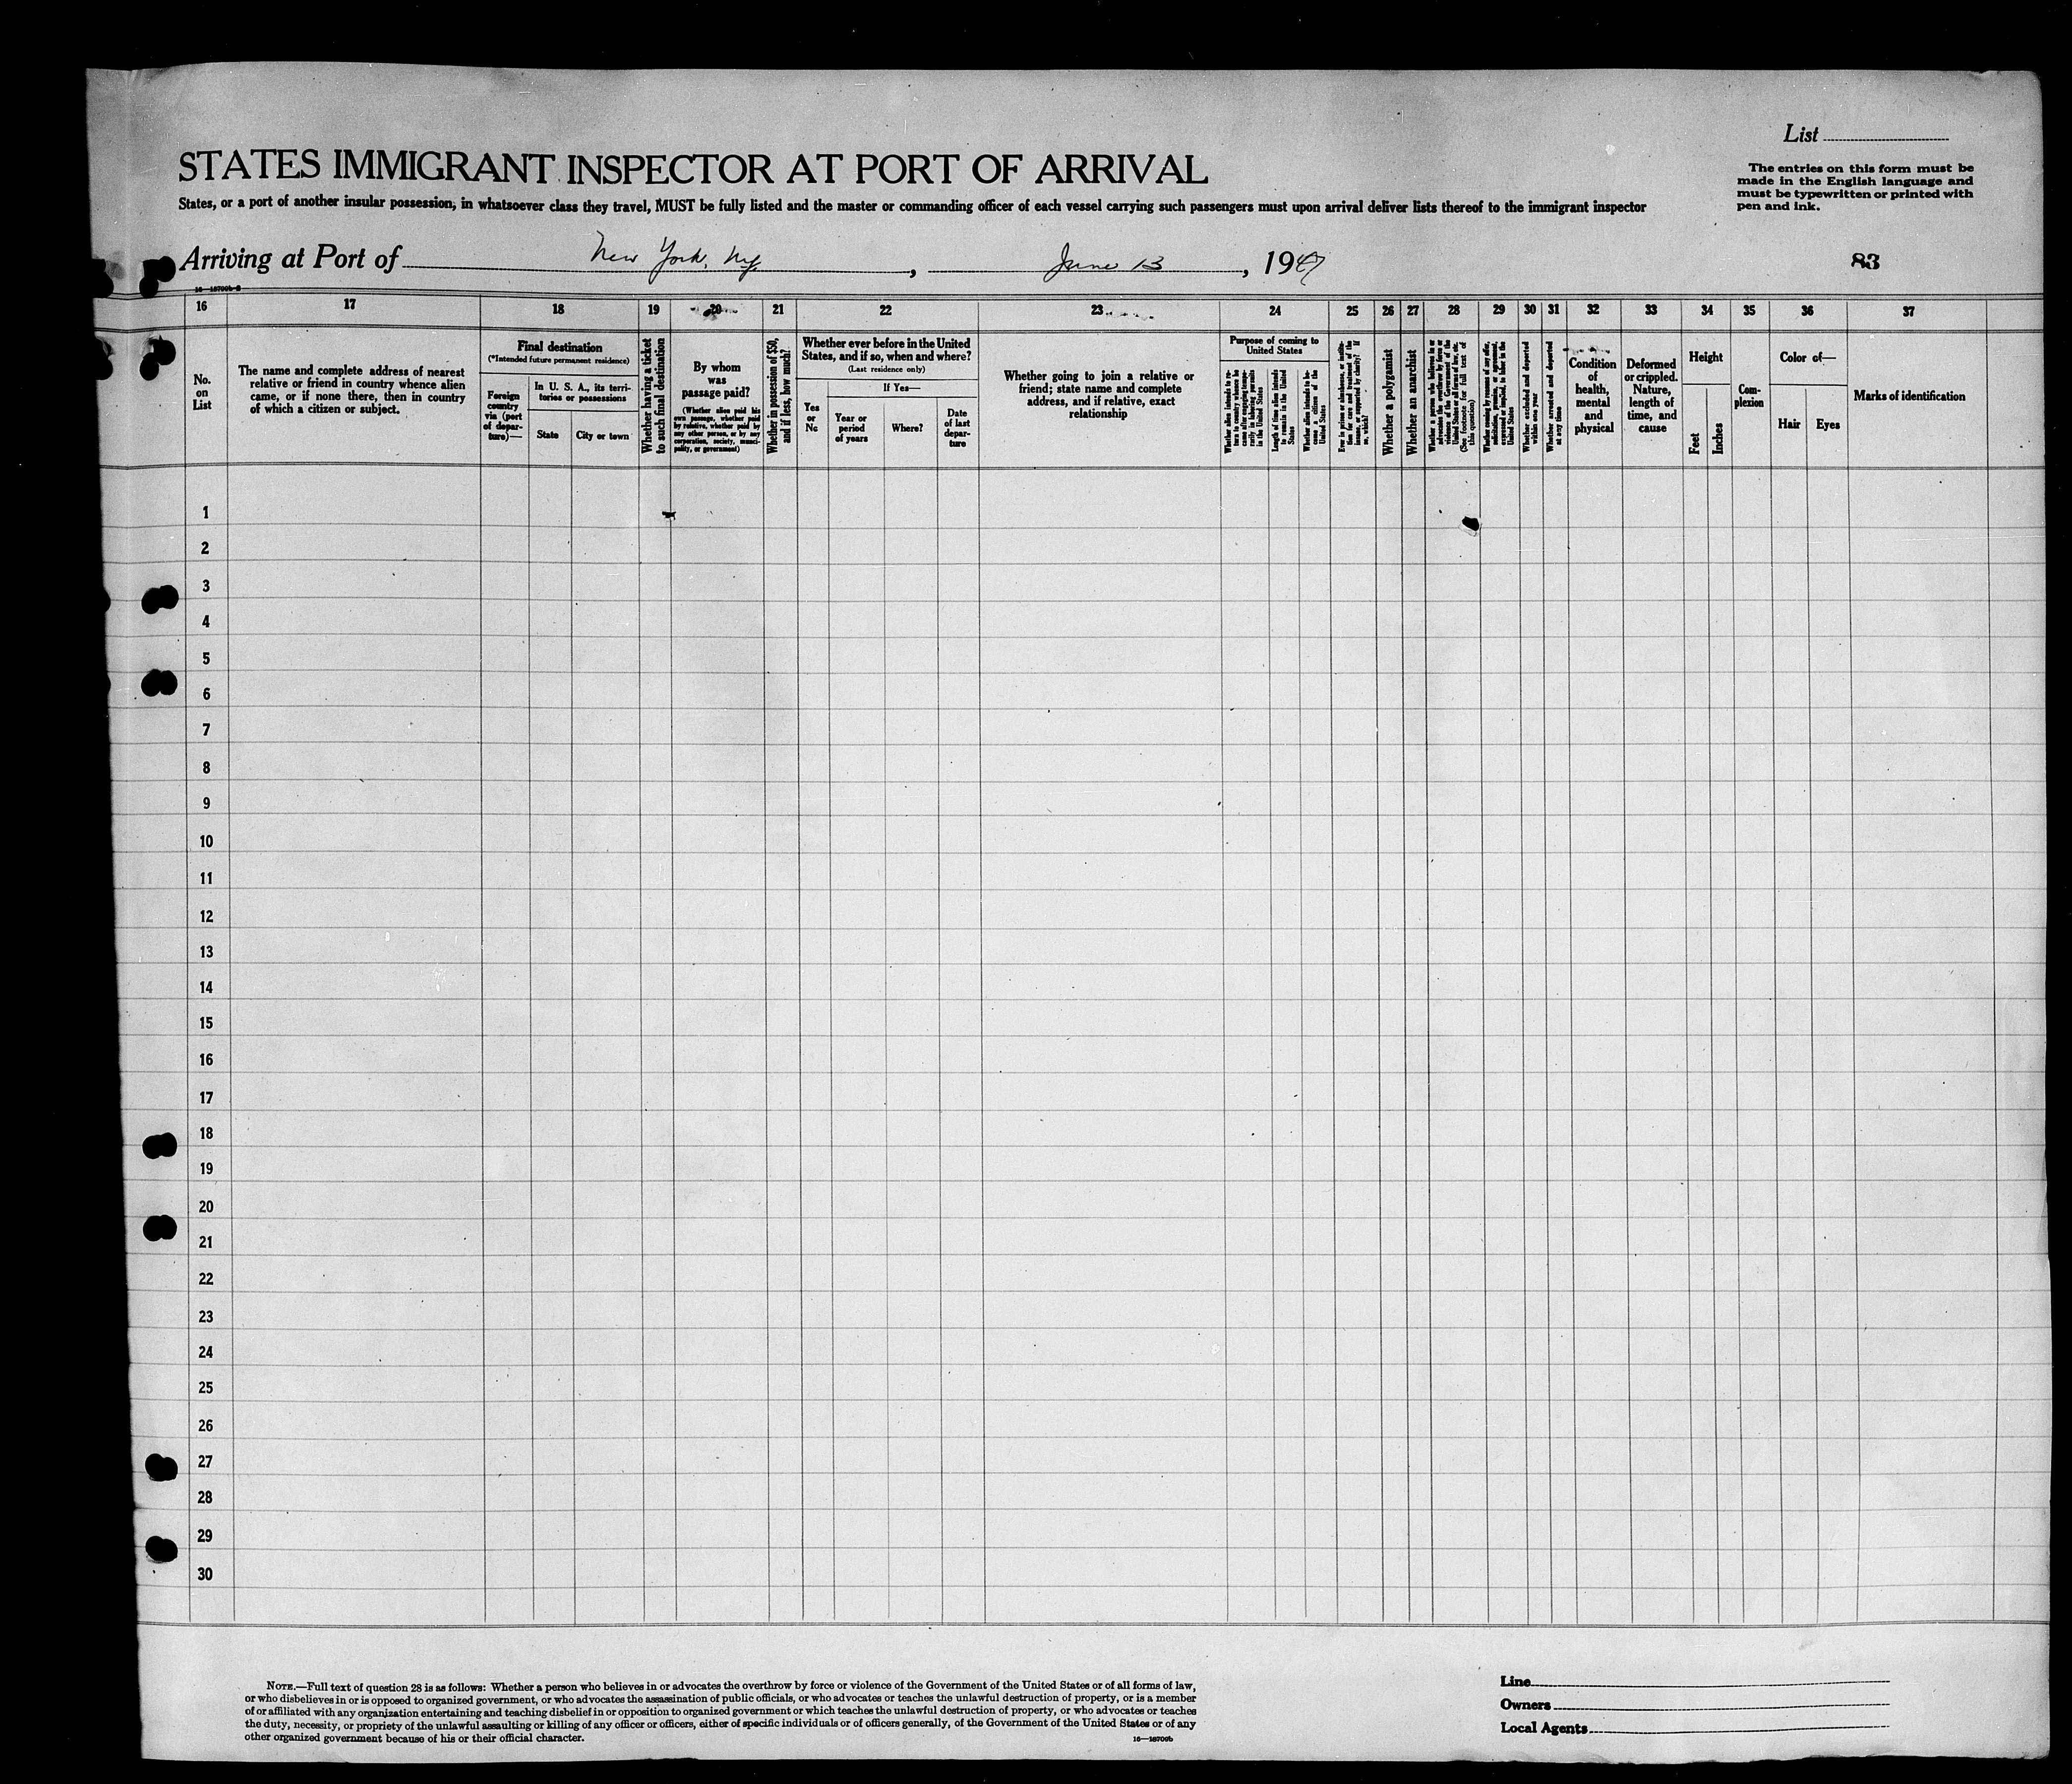 List
STATES IMMIGRANT INSPECTOR AT PORT OF ARRIVAL
The entries on this form must be
made in the English language and
must be typewritten or printed with
pen and ink.
States, or a port of another insular possession, in whatsoever class they travel, MUST be fully listed and the master or commanding officer of each vessel carrying such passengers must upon arrival deliver lists thereof to the immigrant inspector
Arriving at Port of New York, Ny, June 13, 1947
83
16—18709b-2
16 17 18 19 20 21 22 23 24 25 26 27 28 29 30 31 32 33 34 35 36 37
No.
on
List
The name and complete address of nearest
relative or friend in country whence alien
came, or if none there, then in country
of which a citizen or subject.
Final destination
(*Intended future permanent residence)
Foreign
country
via (port
of depar-
ture)—
In U. S. A., its terri-
tories or possessions
State
City or town
Whether having a ticket
to such final destination
By whom
was
passage paid?
(Whether alien paid his
own passage, whether paid
by relative, whether paid by
any other person, or by any
corporation, society, munici-
pality, or government)
Whether in possession of $50,
and if less, how much?
Whether ever before in the United
States, and if so, when and where?
(Last residence only)
Yes
or
No
If Yes—
Year or
period
of years
Where?
Date
of last
depar-
ture
Whether going to join a relative or
friend; state name and complete
address, and if relative, exact
relationship
Purpose of coming to
United States
Whether alien intends to re-
turn to country whence he
came after engaging tempo-
rarily in laboring pursuits
in the United States
Length of time alien intends
to remain in the United
States
Whether alien intends to be-
come a citizen of the
United States
Ever in prison or almshouse, or institu-
tion for care and treatment of the
insane, or supported by charity? If
so, which?
Whether a polygamist
Whether an anarchist
Whether a person who believes in or
advocates the overthrow by force or
violence of the Government of the
United States or all forms of law, etc.
(See footnote for full text of
this question)
Whether coming by reason of any offer,
solicitation, promise, or agreement,
expressed or implied, to labor in the
United States
Whether excluded and deported
within one year
Whether arrested and deported
at any time
Condition
of
health,
mental
and
physical
Deformed
or crippled.
Nature,
length of
time, and
cause
Height
Feet
Inches
Com-
plexion
Color of—
Hair
Eyes
Marks of identification
1
2
3
4
5
6
7
8
9
10
11
12
13
14
15
16
17
18
19
20
21
22
23
24
25
26
27
28
29
30
NOTE.—Full text of question 28 is as follows: Whether a person who believes in or advocates the overthrow by force or violence of the Government of the United States or of all forms of law,
or who disbelieves in or is opposed to organized government, or who advocates the assassination of public officials, or who advocates or teaches the unlawful destruction of property, or is a member
of or affiliated with any organization entertaining and teaching disbelief in or opposition to organized government or which teaches the unlawful destruction of property, or who advocates or teaches
the duty, necessity, or propriety of the unlawful assaulting or killing of any officer or officers, either of specific individuals or of officers generally, of the Government of the United States or of any
other organized government because of his or their official character.
16—18709b
Line
Owners
Local Agents